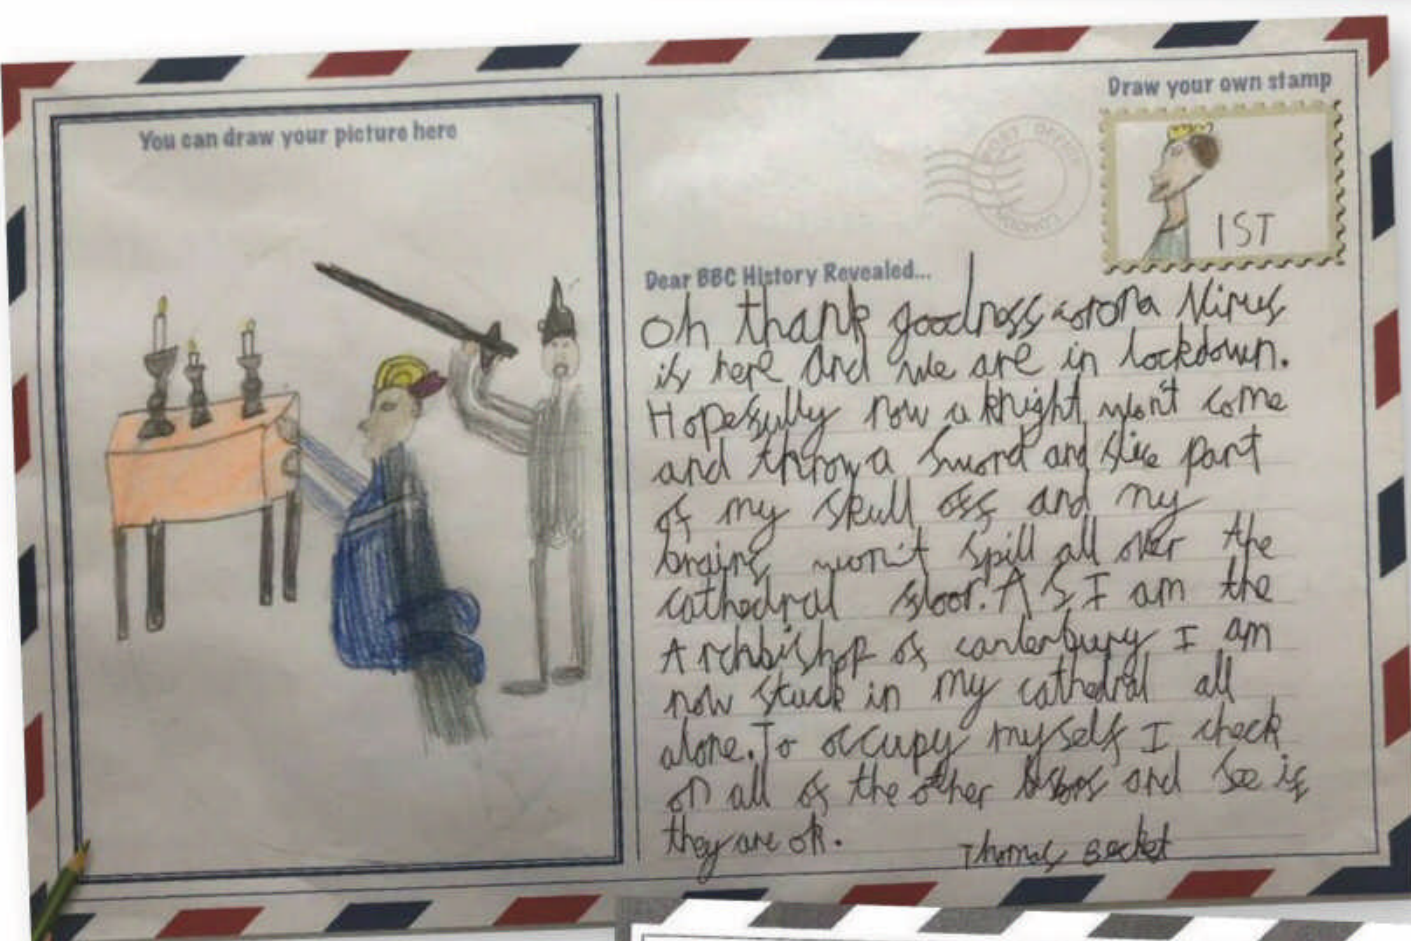 You can draw your picture here
Draw your own stamp
POST OFFICE
LONDON
1ST
Dear BBC History Revealed...
oh thank goodness corona Virus
is here and we are in lockdown.
Hopefully now a knight won't come
and throw a sword and slice part
of my skull off and my
brains won't spill all over the
cathedral floor. As I am the
Archbishop of canterbury I am
now stuck in my cathedral all
alone. To occupy myself I check
on all of the other and see if
they are ok.
Thomas Becket